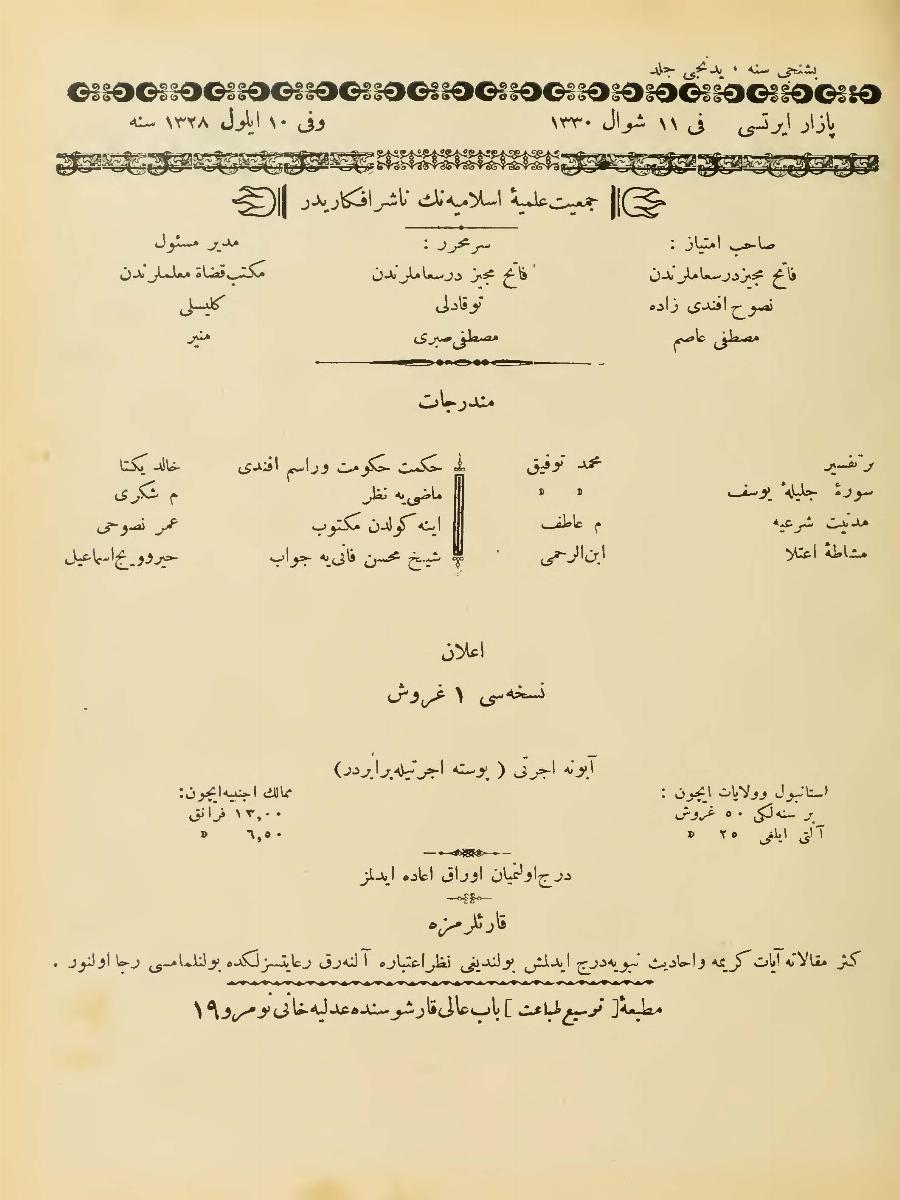 بشنجی سنه ٠ یدنجی جلد
پازار ایرتسی فی ١١ شوال ١٣٣٠ وفی ١٠ ایلول ١٣٢٨ سنه
جمعیت علمیۀ اسلامیه نك ناشر افکاریدر
صاحب امتیاز : سرمحرر : مدیر مسئول
فاتح مجیز درسعاملرندن فاتح مجیز درسعاملرندن مکتب قضاة معلملرندن
نصوح افندی زاده توقادلی کلیسلی
مصطفی عاصم مصطفی صبری منیر
مندرجات
بر تفسیر محمد توفیق حکمت حکومت وراسم افندی خالد یکتا
سورۀ جلیلۀ یوسف » » ماضی یه نظر م شکری
مدنیت شرعیه م عاطف اینه کولدن مکتوب عمر نصوحی
مشاطۀ اعتلا ابن الرحمی شیخ محسن فانی یه جواب اسماعیل
اعلان
نسخه سی ١ غروش
آبونه اجرتی ( پوسته اجرتیله برابردر)
استانبول وولایات ایچون : ممالك اجنبیه ایچون:
بر سنه لکی ٥٠ غروش ١٣,٠٠ فرانق
آلتی ایلغی ٢٥ » ٦,٥٠ »
درج اولنمیان اوراق اعاده ایدلمز
قارئلرمزه
اکثر مقالاته آیات کریمه واحادیث نبویه درج ایدلمش بولندیغی نظر اعتباره آلنه رق رعایتسزلکده بولنلمامسی رجا اولنور .
مطبعۀ [ توسیع طباعت ] باب عالی قارشوسنده عدلیه خانی نومرو ١٩